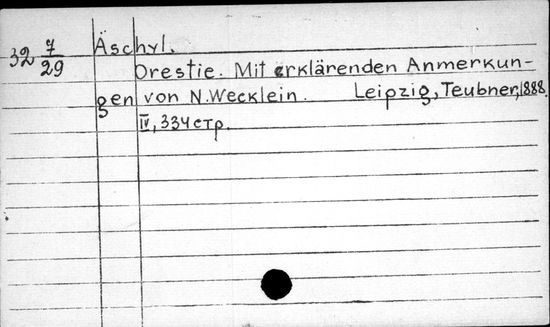 32 7/29
Äschyl.
Orestie. Mit erklärenden Anmerkun-
gen von N. Wecklein. Leipzig, Teubner, 1888.
IV, 334 стр.